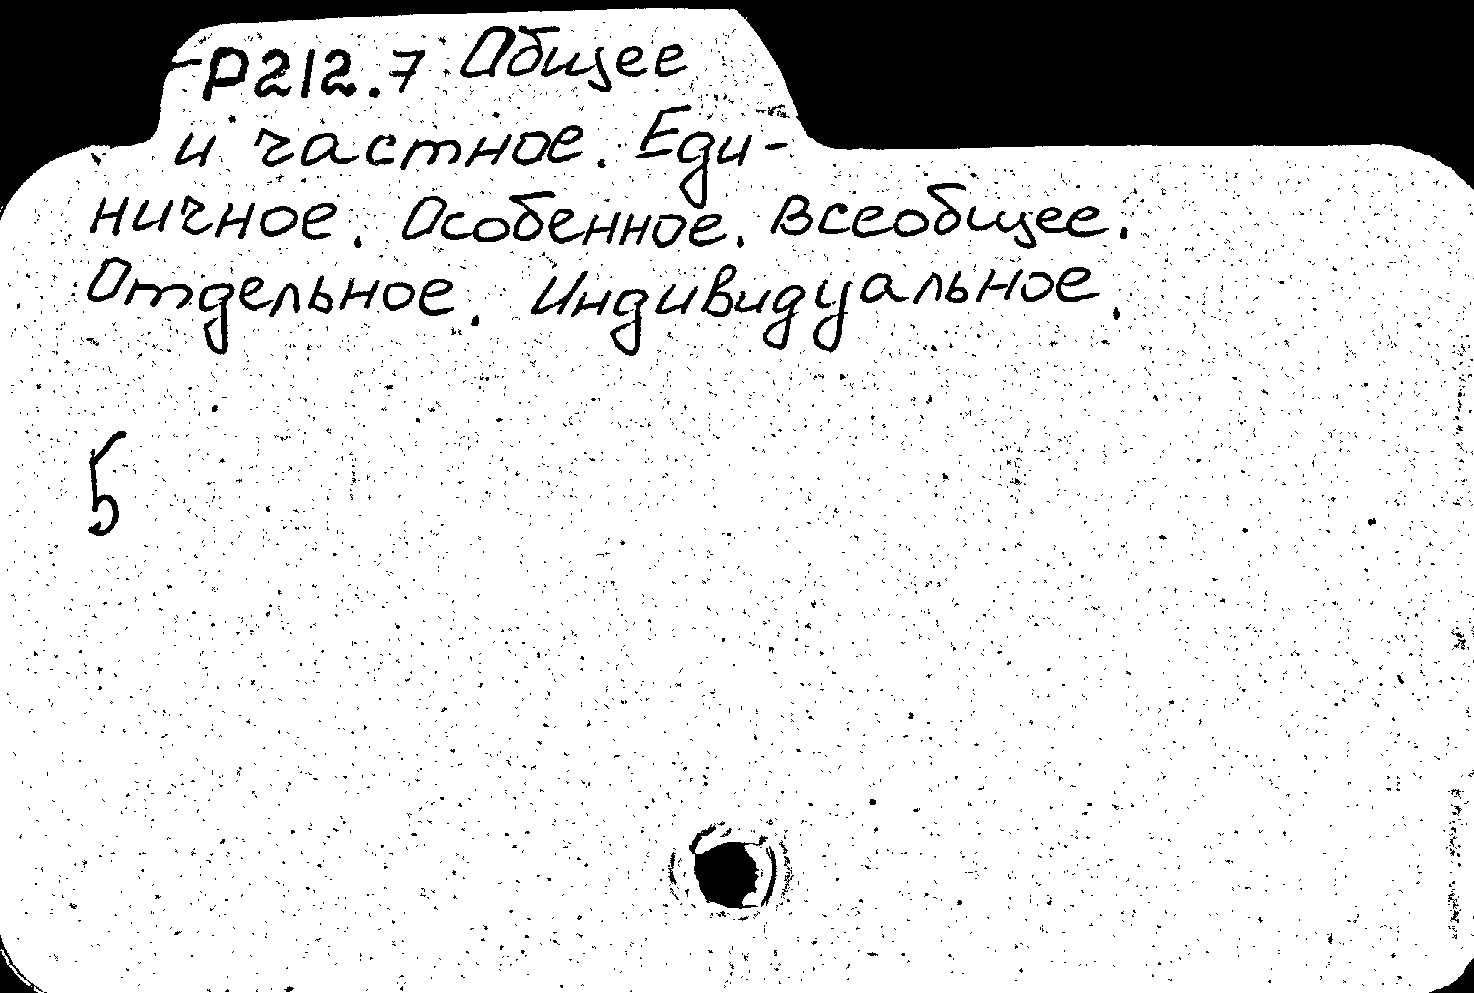 -Р212.7 Общее
и частное. Еди-
ничное. Особенное. Всеобщее.
Отдельное. Индивидуальное.
Б